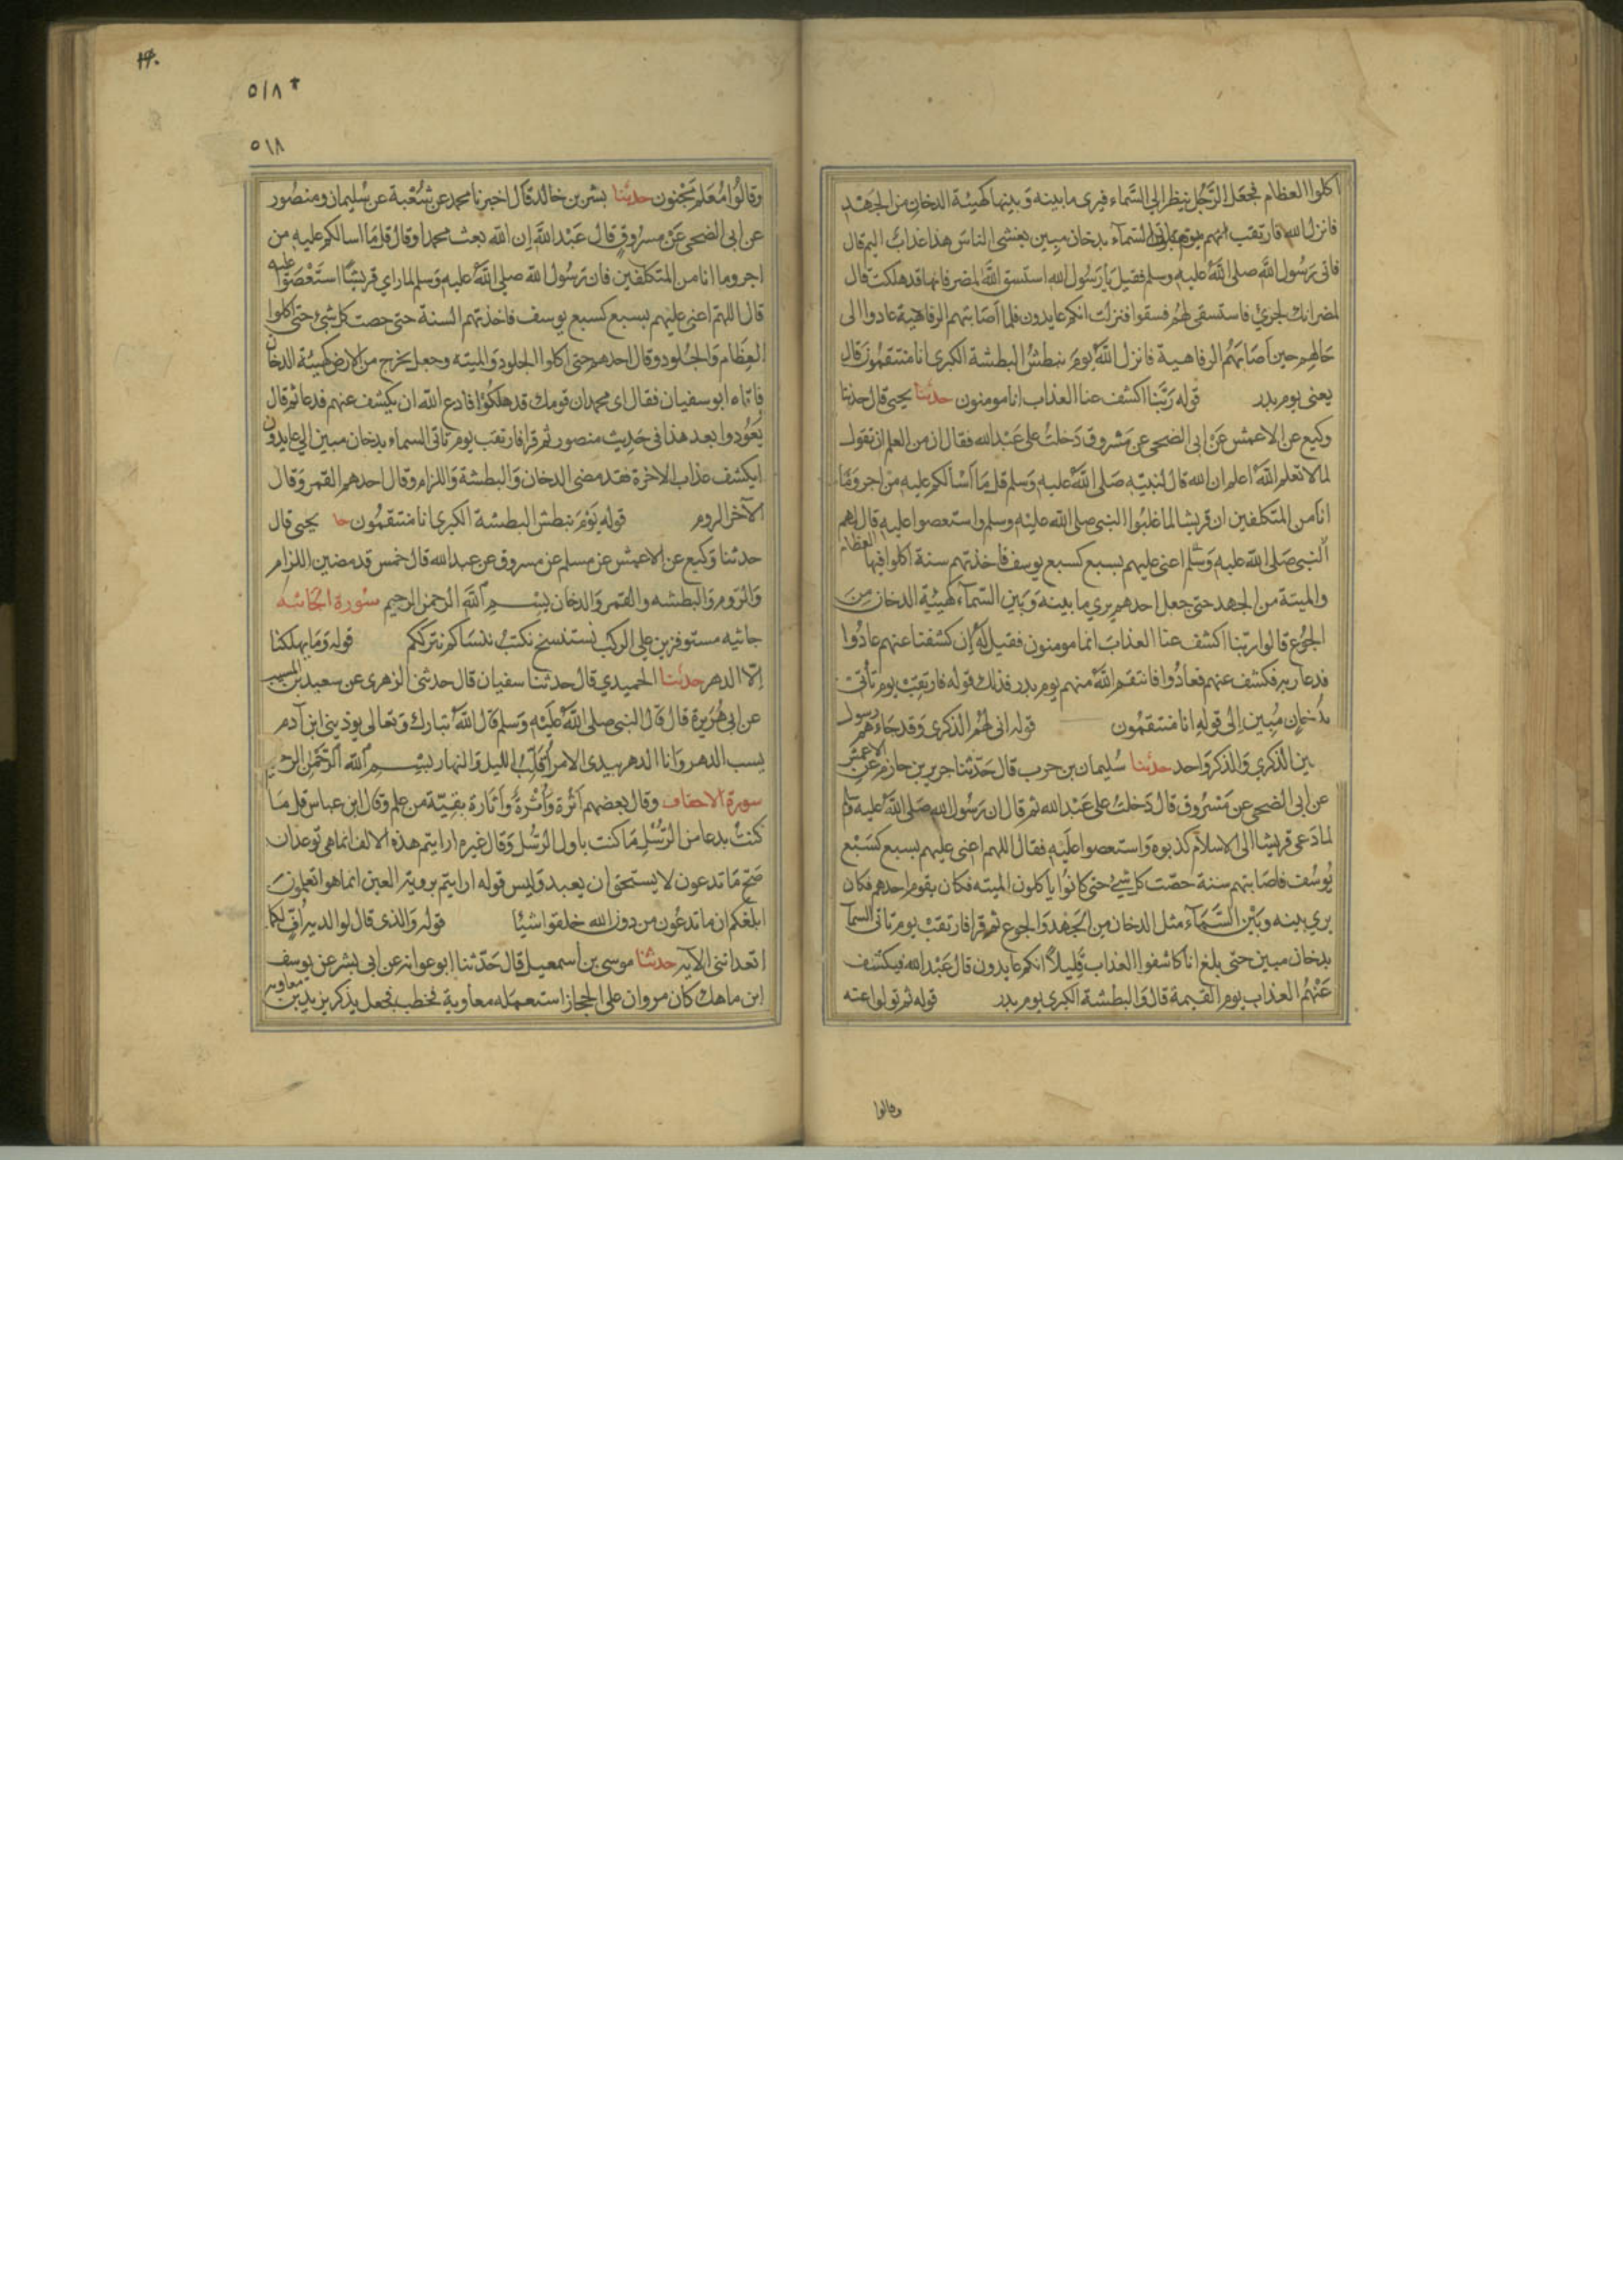 اكلوا العظام فجعل الرَّجُل ينظر الي السَّماء فيرى ما بينه وَبينها كهيئة الدخان من الجَهد
فانزل الله فارتقب يوم تاتى السَّمآء بدخان مبين يغشى الناسَ هذا عذابٌ اليم قال
فاتى رَسُول اللَّه صلى اللَّهُ عليه وسلم فقيل يَا رَسُول الله استسق اللَّهَ لمضر فانها قد هلكت قال
لمضر انك لجرئ فاستسقى لهُم فسقوا فنزلت انكم عايدون فلما اصَابتهم الرفاهية عادوا الى
حَالهم حين اَصَابَتهُم الرفاهية فانزل اللَّهُ يومَ نبطشُ البطشة الكبرى انا منتقمُونَ قال
يعنى يوم بدر قوله رَبَّنا اكشف عنا العذاب انا مومنون حدثنا يحيى قال حدثنا
وكيع عن الاعمش عَنْ ابى الضحى عن مَسْروق دَخلتُ على عَبْد الله فقال ان من العلم ان تقول
لما لا تعلم اللَّهُ اعلم ان الله قال لنبيّه صَلى اللَّهُ عليه وَسلم قل مَا أسْألكم عليه من اجر وَمَا
انا من المتكلفين ان قريشا لما غلبُوا النبى صلى الله عليْه وسلم واستعصوا عليه قال اللهم
النبى صَلى الله عليه وَسَلم اعنى عليهم بسبع كسبع يوسف فاخذتهم سنة اكلوا فيها العظام
والميتة من الجهد حتى جعل احدهم يري ما بينه وَبَين السَّمآء كهيئة الدخان مِنَ
الجُوع قالوا ربّنا اكشف عنا العذابَ انا مومنون فقيل لهُ إن كشفنا عنهم عادُوا
فدعا ربه فكشف عنهم فعادُوا فانتقم اللَّهُ منهم يوم بدر فذلك قوله فارتقِبْ يوم تأتى
بدُخَانٍ مُبِين اِلىٰ قوله انا منتقمُون قوله انى لهُم الذكرى وَقد جَاءهُم رسول
مبين الذكري والذكر واحد حدثنا سُليمان بن حرب قال حَدّثنا جرير بن حازم عن الاعمش
عن ابى الضحى عن مَسْرُوق قال دَخلتُ على عَبْد الله ثم قال ان رَسُول الله صَلى اللَّهُ عليه وسلم
لما دَعى قريشا الى الاسلام كذبوه وَاستعصوا علَيه فقال اللهم اعنى عليهم بسبع كسَبْع
يُوسُف فاصَابتهم سنة حصّت كل شىءٍ حتى كانُوا ياكلون الميته فكان يقوم احدهم فكان
يرى بينه وبَيْن السَّمَآء مثل الدخان من الجَهْد وَالجوع ثم قرا فارتقبْ يوم تاتى السما
بدخان مبين حتى بلغ انا كاشفوا العذاب قليلاً انكم عايدون قال عَبْد الله فيكشف
عَنْهُم العذاب يوم القيمة قال وَالبطشة الكبرى يوم بدر قوله ثم تولوا عنه
وقالوا
١٩٠
٥١٨
٥١٨
وقالُوا مُعَلم مَجْنون حدثنا بشر بن خالد قال اخبرنا محمد عن شُعْبة عن سُليمان ومنصُور
عن ابى الضحى عَنْ مسروقٍ قال عَبْد اللَّه إن اللّه بعث محمدا وقال قل مَا اسالكم عليه من
اجر وما انا من المتكلفين فان رَسُول اللّه صلى اللَّهُ عليه وَسلم لما راي قريشًا استَعْصَوْا عليه
قال اللهم اعنى عليهم بسبع كسبع يوسف فاخذتهم السنة حتى حصت كل شئ حتى اكلوا
العظام وَالجُلود وقال احدهم حتى اكلوا الجلود وَالميته وجعل يخرج من الارض كهيئة الدخان
فاتاه ابو سفيان فقال اى محمد ان قومك قد هلكُوا فادع الله ان يكشف عنهم فدعا ثم قال
يَعُودوا بعد هذا فى حَدِيث منصور ثم قرا فارتقب يوم تاتى السماء بدخان مبين الي عايدون
ايكشف عذاب الاخرة فقد مضى الدخان وَالبطشة وَاللزام وقال احدهم القمر وَقال
الآخر الروم قوله يَوْمَ نبطش البطشة الكبرى انا منتقمُون حا يحيى قال
حدثنا وَكيع عن الاعمش عن مسلم عن مسروق عن عبد الله قال خمس قد مضين اللزام
وَالرّوم وَالبطشه والقمر وَالدخان بِسْمِ اللَّهِ الرحمن الرحيم سُورة الجاثيه
جاثيه مستوفزين على الركب نستنسخ نكتبُ ننسَاكم نترككم قوله وَمَا يهلكنا
اِلّا الدهر حدثنا الحميدي قال حدثنا سفيان قال حدثنى الزهرى عن سعيد بن المسيب
عن ابى هُرَيرة قال قال النبى صلى اللَّهُ عَلَيْه وَسَلم قال اللَّهُ تبارك وَتعَالى يوذينى ابن آدم
يسب الدهر وَانا الدهر بيدى الامر اُقلّبُ الليل والنهار بِسْمِ اللَّه الرَّحمن الرحيم
سورة الاحقاف وقال بعضهم اَثَرَة وَأُثْرَةٌ وَأثارة بقيّة من علم وَقال ابن عباس قل مَا
كنتُ بدعا من الرّسُل مَا كنت باول الرّسُل وَقال غيره ارايتم هذه الالف انما هى توعد ان
صَحَّ مَا تدعون لا يستحق ان يعبد وَليس قوله ارايتم بروية العين انما هو اتعلمونَ
ابلغكم ان ما تدعُون من دون الله خلقوا شيئا قوله وَالذى قال لوالديه اُفٍّ لكما
اتعداننى الآيه حدثنا موسى بن اسمعيل قال حَدّثنا ابو عوانه عن ابى بشر عن يوسف
ابن ماهك كان مروان على الحجاز استعمَله معاوية فخطب فجعل يذكر يزيد بن معاويه